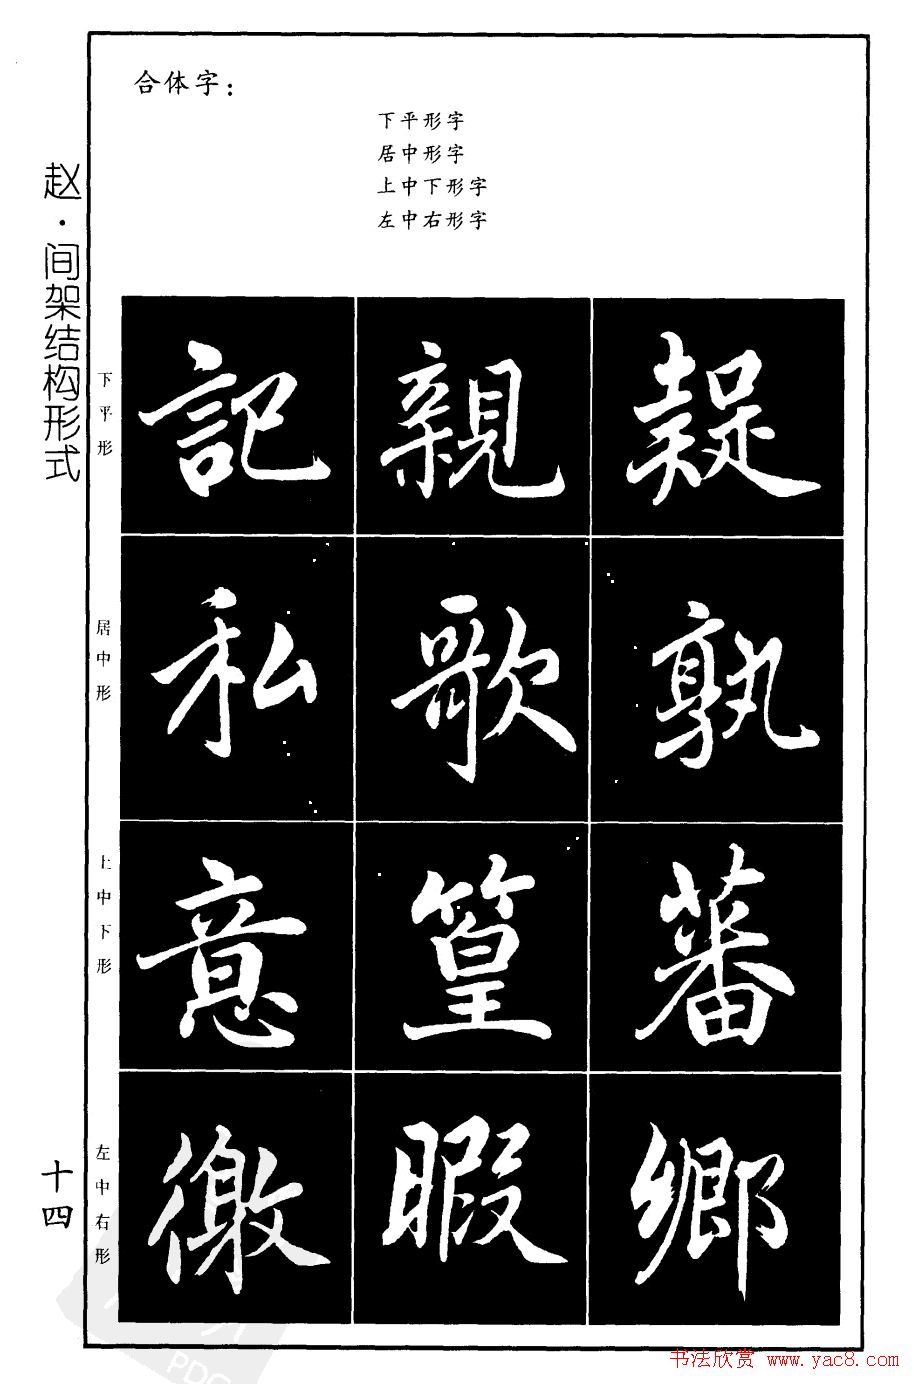 合体字：
下平形字
居中形字
上中下形字
左中右形字
赵·间架结构形式
十四
下平形
記親疑
居中形
私歌孰
上中下形
意篁蕃
左中右形
暇鄉
书法欣赏 www.yac8.com